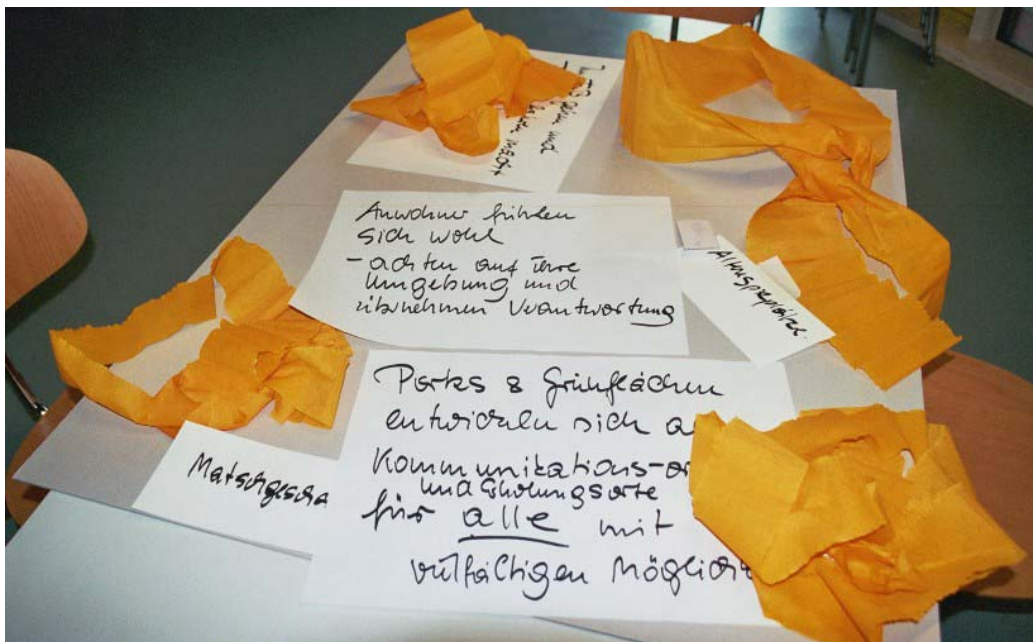 und
macht
Anwohner fühlen
sich wohl
- achten auf ihre
Umgebung und
übernehmen Verantwortung
Parks & Grünflächen
entwickeln sich a
Kommunikations-or
und Erholungsorte
für alle mit
vielfältigen Möglichk
Matschgescha